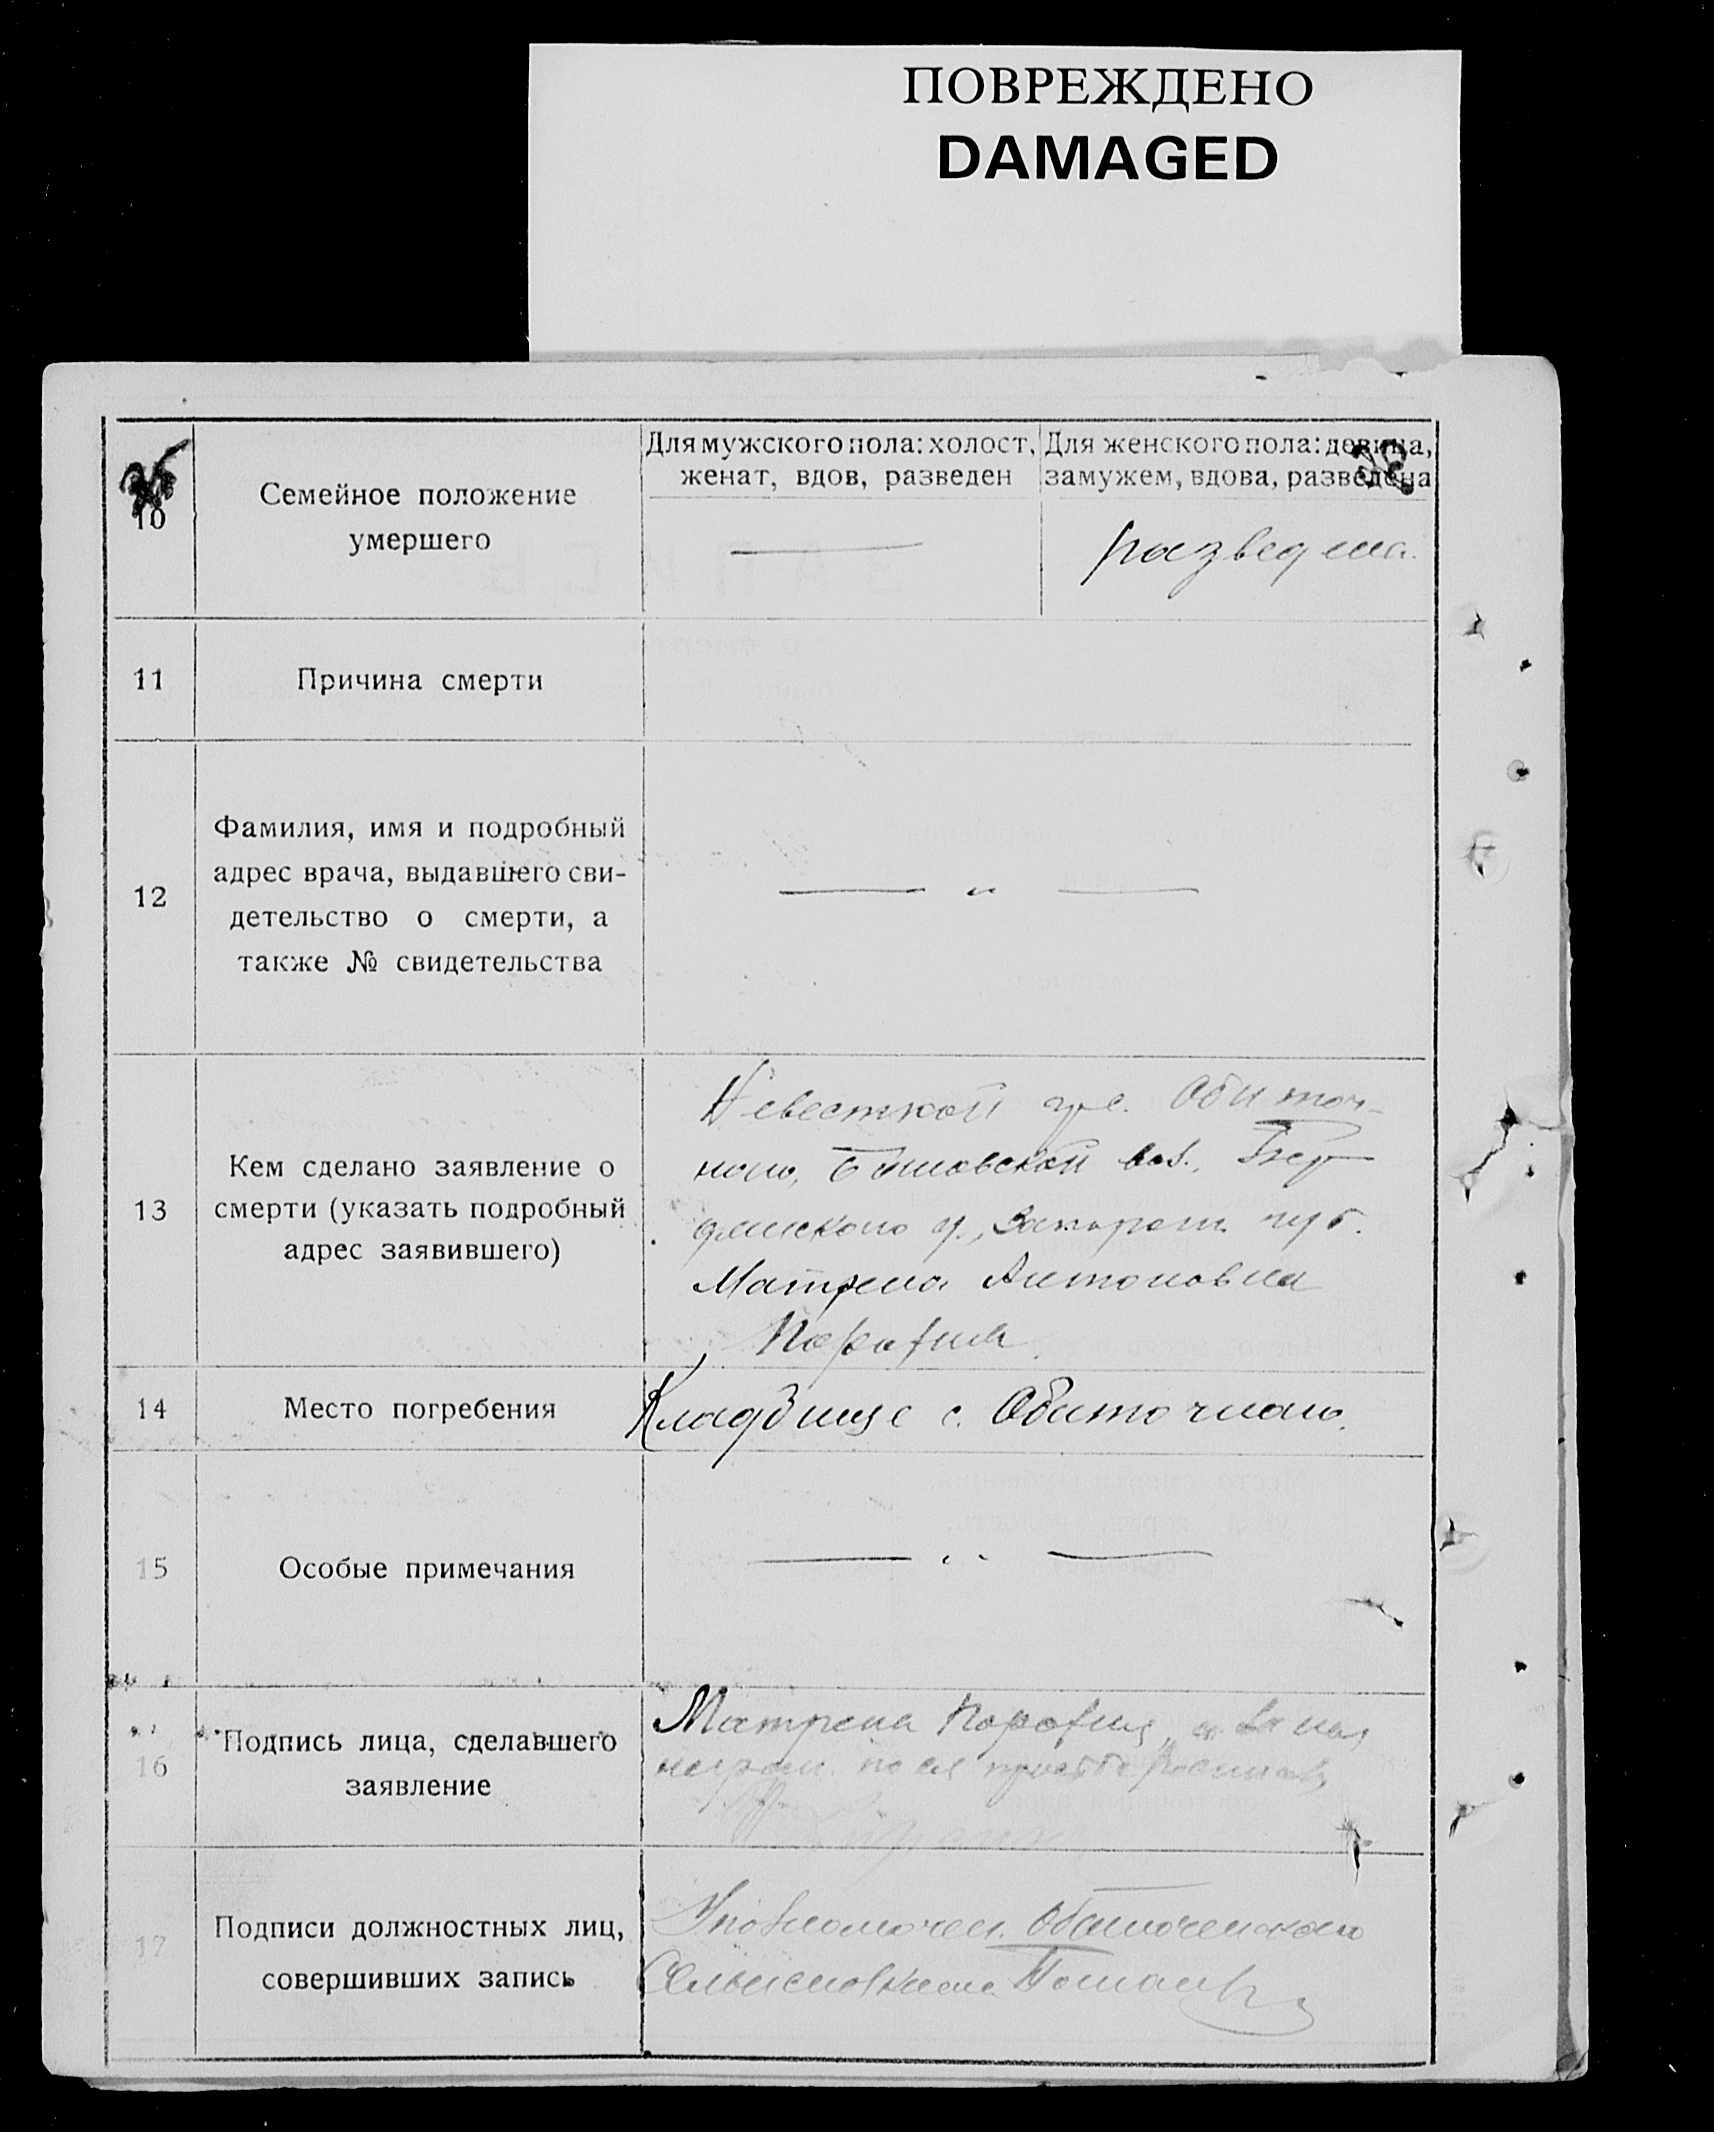 ПОВРЕЖДЕНО
DAMAGED
10
Семейное положение
умершего
Для мужского пола: холост,
женат, вдов, разведен
Для женского пола: девица,
замужем, вдова, разведена
разведена.
11
Причина смерти
12
Фамилия, имя и подробный
адрес врача, выдавшего сви-
детельство о смерти, а
также № свидетельства
— " —
13
Кем сделано заявление о
смерти (указать подробный
адрес заявившего)
Невесткой гр. с. Обиточ-
ного, вол., Бер-
дянского у., Запорож. губ.
Матрена Антоновна
14
Место погребения
Кладбище с. Обиточного.
15
Особые примечания
— " —
16
Подпись лица, сделавшего
заявление
Матрена
17
Подписи должностных лиц,
совершивших запись
Уполномочен. Обиточенского